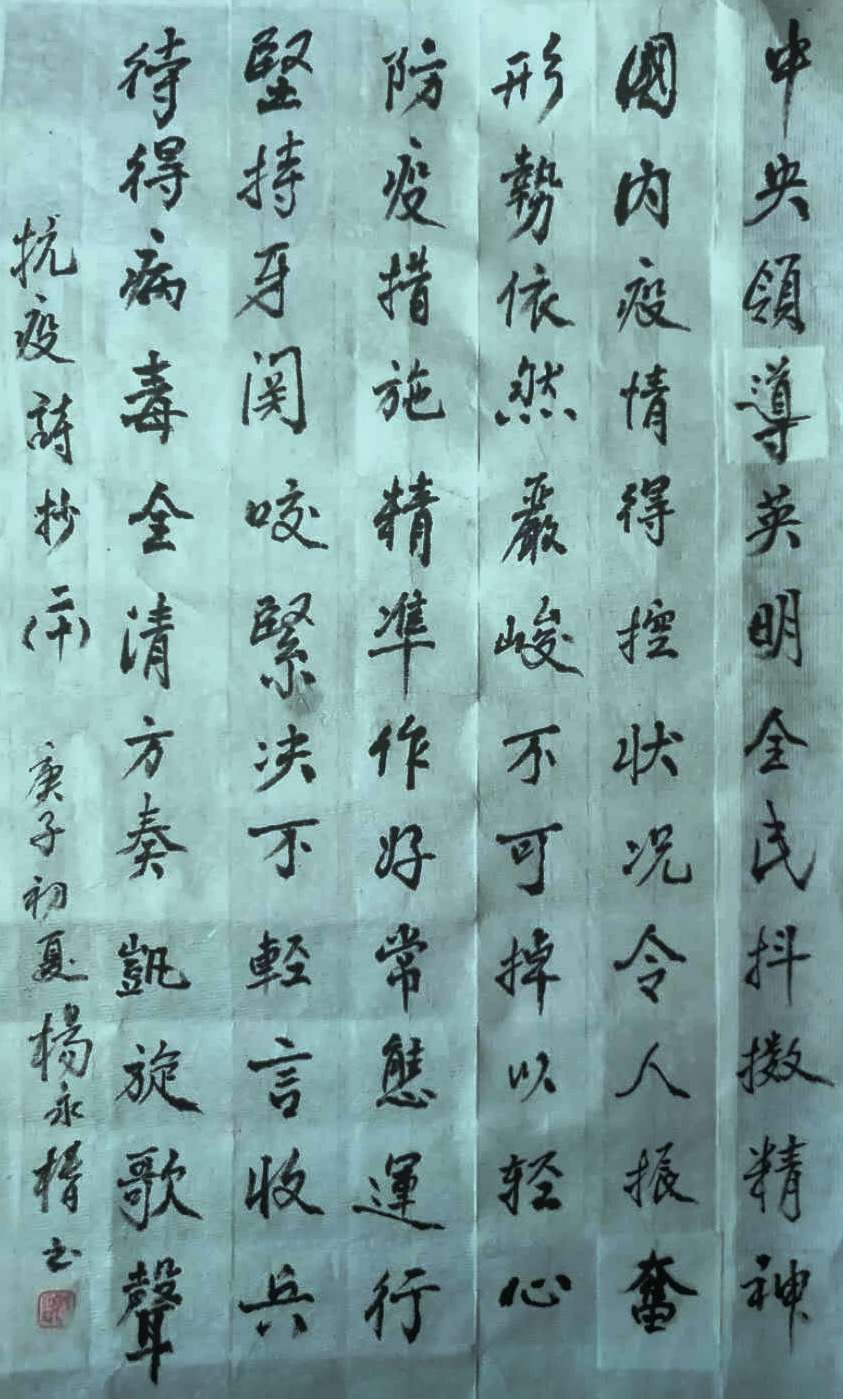 中央領導英明全民抖擻精神
國内疫情得控状况令人振奮
形勢依然嚴峻不可掉以轻心
防疫措施精準作好常態運行
堅持牙関咬緊决不輕言收兵
待得病毒全清方奏凱旋歌聲
抗疫詩抄(二十)
庚子初夏楊永楷书